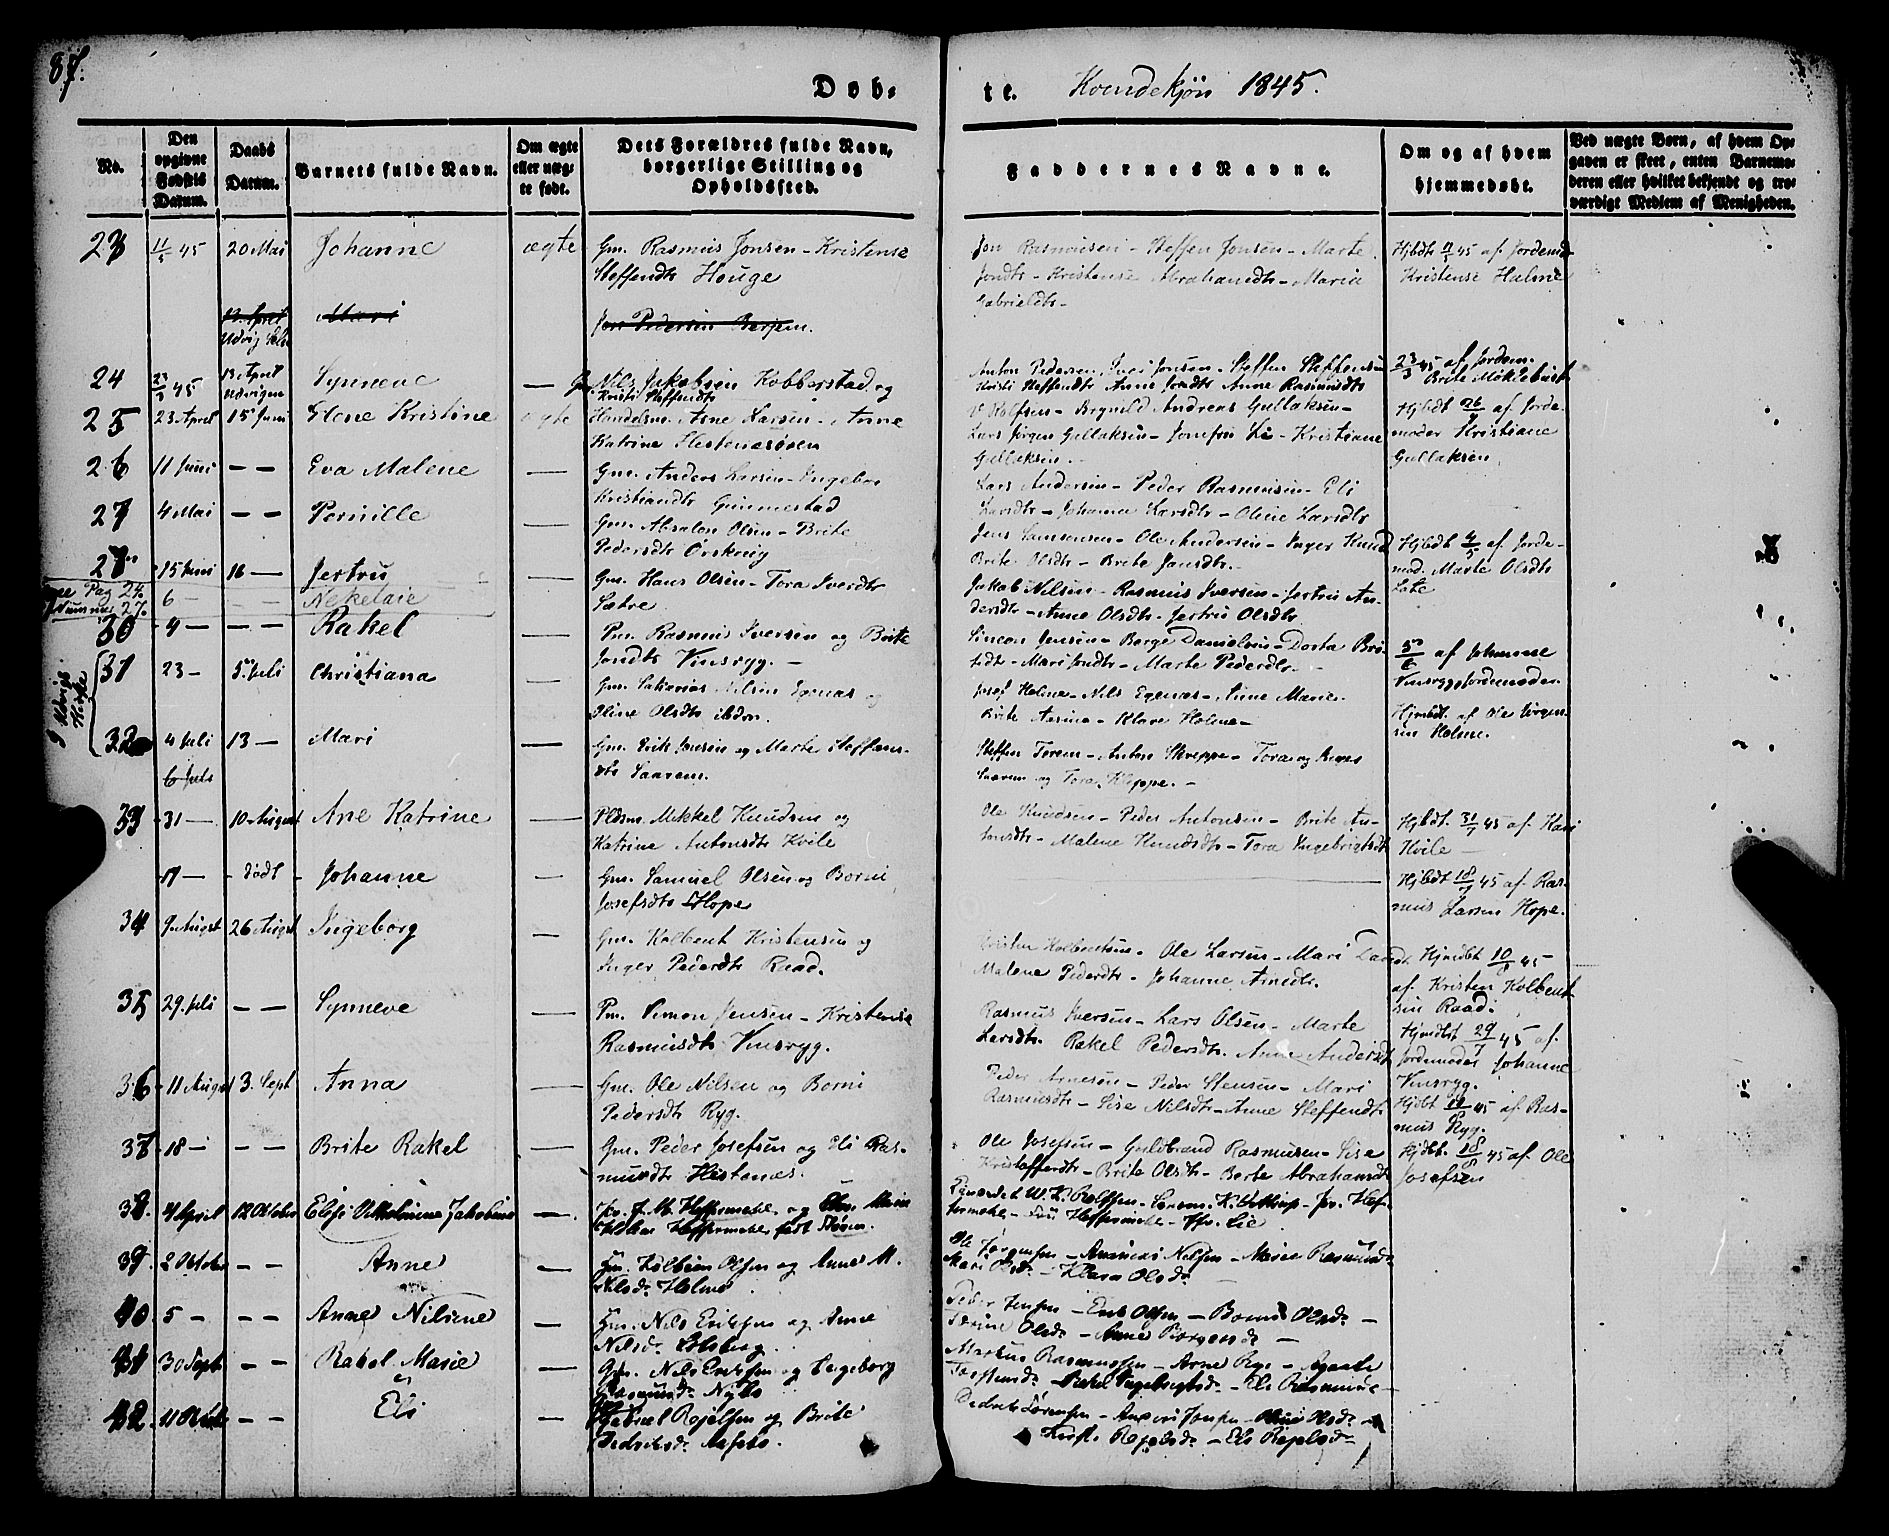 87.
Døb-
te. Kvindekjøn 1845.
No.
Den opgivne Fødsels Datum.
Daabs Datum.
Barnets fulde Navn.
Om ægte eller uægte født.
Dets Forældres fulde Navn, borgerlige Stilling og Opholdssted.
Faddernes Navne.
Om og af hvem hjemmedøbt.
Ved uægte Børn, af hvem Opgaven er skeet, enten Barnemoderen eller hvilket bekjendt og troværdigt Medlem af Menigheden.
23 11/5 45 20 Mai Johanne ægte Gm. Rasmus Jonsen - Kristense
Steffensdtr Houge
Jon Rasmusen - Steffen Jonsen - Marte
Jondtr - Kristense Abrahamdtr - Marie
Gabrieldtr -
Hjbdt 11/5 45 af Jordemo
Kristense Halme
12 April Mari Jon Pedersen Berjem.
24 23/3 45 13 April Synneve — Gm Nils Jakobsen Kobberstad og
Udvigen Kristi Steffendtr
Anton Pedersen, Jonsen - Steffen Steffensen
Kristi Steffendtr Anne Jondtr Anne Rasmusdtr
23/3 45 af Jordem.
Brite Myklebust
25 23 April 15 Juni Elene Kristine ægte Handelsm. Arne Larsen - Anne
Katrine Hestenesøen
V Rolfsen - Brynild Andreas Gullaksen -
Lars Jørgen Gullaksen - Jomfru Lie - Kristiane
Gullaksen. -
Hjbdt 26/4 af Jorde-
moder Kristiane
Gullaksen
26 11 Juni — — Eva Malene — Gm. Anders Larsen - Ingebor
Kristiandtr Gimmestad
Lars Andersen - Peder Rasmusen - Eli
Larsdtr - Johanne Larsdtr - Oline Larsdtr
27 4 Mai — — Pernille — Gm. Absalon Olsen - Brite
Pedersdtr Ørskrug
Jens Samsonsen - Ole Andersen - Inger Knud
Brite Olsdtr - Brite Jansdtr. -
Hjbdt 4/5 af Jorde-
mod. Marte Olsdtr
Lote
28 15 Juni 16 — Jertru — Gm. Hans Olsen - Tora Iverdtr
Sætre
Jakob Nilsen - Rasmus Iversen - Jertru An-
dersdtr - Anne Olsdtr - Jertru Olsdtr
Pag 24
Nummer 27.
6 — Nekelaie
30 4 — — — Rakel — Pm. Rasmus Iversen og Brite
Jondtr Vinsryg. -
Simon Jensen - Børge Danielsen - Dorta Bri-
tdtr - Mari Jondtr - Marte Pederdtr. -
5/6 af Johanne
Vinsryg Jordemoder
I Udvigs Kirke
31 23 — 5. Juli Christiana — Gm. Sakarias Nilsen Egenæs og
Oline Olsdtr ibdm.
Josef Holme - Nils Egenæs - Anne Marie
Brite Ansine - Klare Holme -
Hjmbdt. af Ole Jørgen-
sen Holme.
32 4 Juli 13 — Mari — Gm. Erik Jensen og Marte Steffens-
dtr Saarem.
Steffen Torem - Anton Skreppe - Tora og
Saarem og Tora Kleppe. -
6 Juli
33 31 — 10 August Ane Katrine — Pldsm. Mikkel Knudsen og
Katrine Antonsdtr Kvile
Ole Knudsen - Peder Antonsen - Brite An-
tonsdtr - Malene Knudsdtr - Tora Ingebrigtsdtr
Hjbdt. 31/7 45 af Kari
Kvile —
17 — Født Johanne — Gm. Samuel Olsen og Borni
Josefsdtr Hope
Hjbdt 18/7 45 af Ras-
mus Larsen Hope.
34 9 August 26 August Ingeborg — Gm. Kolbent Kristensen og
Inger Pederdtr Raad.
Kristen Kolbentsen - Ole Larsen - Mari Larsdt
Malene Pederdtr - Johanne Arnedtr.
Hjmdbt 10/8 45 -
af Kristen Kolbent
sen Raad.
35 29. Juli — — Synneve — Pm. Simon Jensen - Kristense
Rasmusdtr Vinsryg.
Rasmus Iversen - Lars Olsen - Marte
Larsdtr. Rakel Pedersdtr. Anne Andersdt
Hjmdbt 29/7 45 af
Jordemoder Johanne
Vinsryg.
36 11 August 3. Sept Anna — Gm. Ole Nilsen og Borni
Pedersdtr Ryg.
Peder Arnesen - Peder Stensen - Mari
Rasmusdtr - Sise Nilsdtr - Anne Steffendtr
Hjdbt 12/8 45 af Ras-
mus Ryg.
37 18 — — — Brite Rakel — Gm. Peder Josefsen og Eli Ras-
musdtr Hestenes.
Ole Josefsen - Guldbrand Rasmusen - Sise
Kristofferdtr - Brite Olsdtr - Berte Abrahamdtr
Hjdbt. 18/8 45 af Ole
Josefsen
38. 4 April 12 Octobr Elise Vilhelmine Jakobine — Hr. J. M. Heffermehl og Marie
Heffermehl født Støren.
W. K. Rolfsen - Sorens. K. - Hr. Hef-
fermehl - Fru Heffermehl - Lie
39. 2 October — — Anne — Gm. Kolbein Olsen og Anne M.
Nilsd. Holme
Ole Jørgensen - Ananias Nilsen - Marie Rasmusd.
Mari Olsd. - Klara Olsd.
40 5 — — — Anne Nilsine — Gm. Nils Eriksen og Anne
Nilsd. Lotsberg.
Peder Jensen - Erik Olsen - Borni Olsd. -
Olsd. - Anne Børgesd. -
41 30 Sept — — Rakel Marie — Gm. Nils Eriksen og Ingeborg
Rasmusd. Nybø
Markus Rasmussen - Arne Ryg - Agnete
- Rakel Ingebrigtsd. - Eli Rasmusd. -
42 11 Octob — — Eli — Gm. Gabriel Rasmussen og Brite
Didriksd. Aafstø.
Didrik Sørensen - Jonsen - Olsd.
- Eli